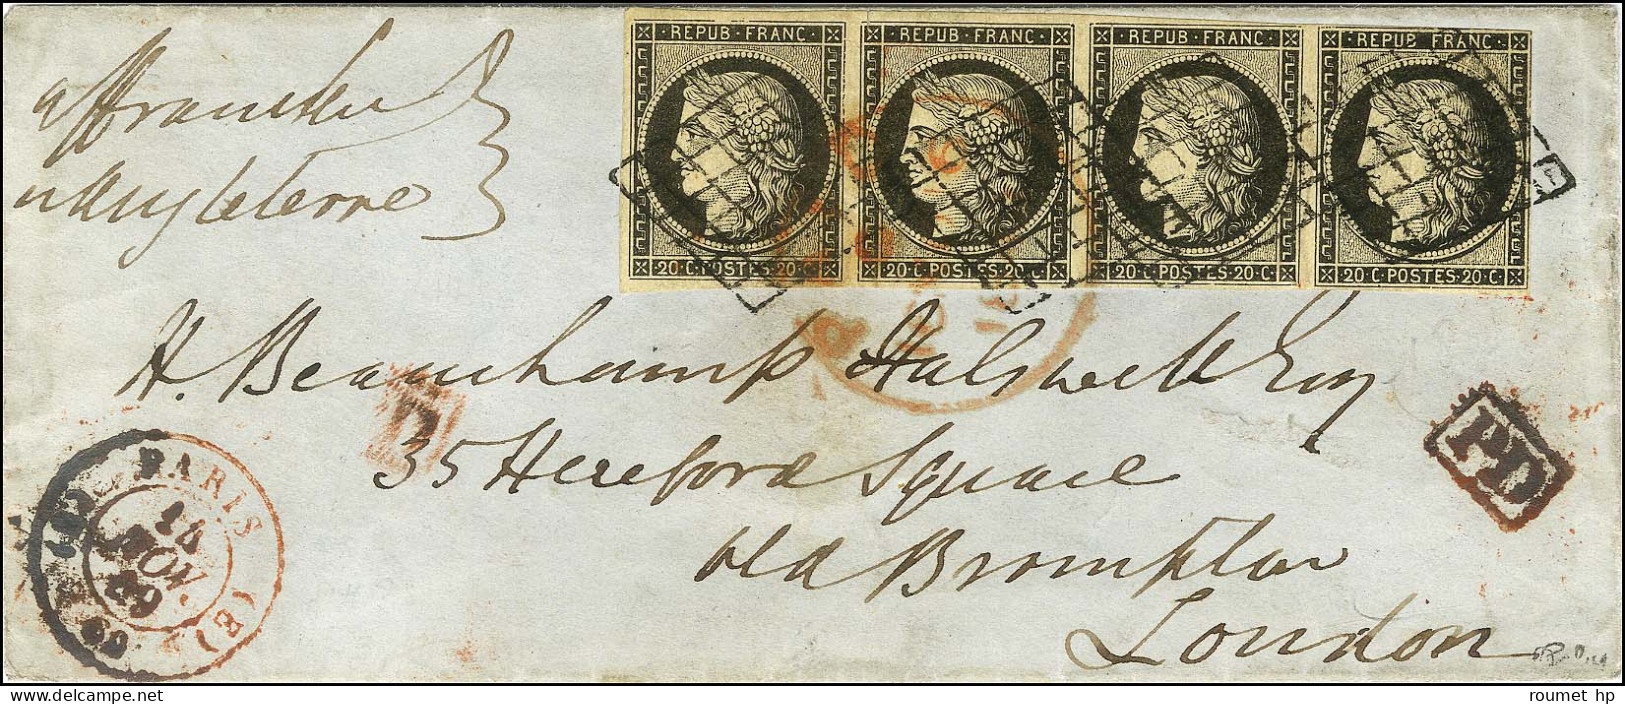 REPUB·FRANC· REPUB·FRANC· REPUB·FRANC· REPUB·FRANC·
20·C·POSTES·20·C· 20·C·POSTES·20·C· 20·C·POSTES·20·C· 20·C·POSTES·20·C·
affranchie
Angleterre
H. Beauchamp Halswell Esq
35 Hereford Square
Old Brompton
London
PARIS
14
NOV.
49
(E)
60
PD
roumet hp